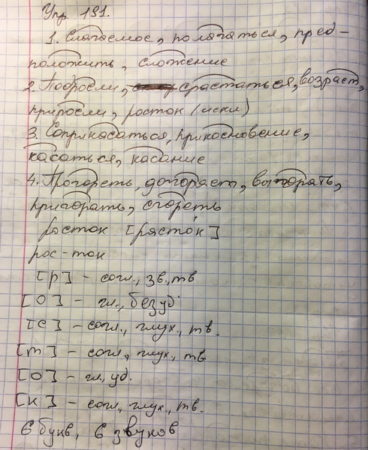 Упр. 191.
1. Слагаемое, полагаться, пред-
положить, сложение
2. Подросли, срастаться, возраст,
приросли, росток (искл)
3. Соприкасаться, прикосновение,
касаться, касание
4. Прогореть, догорает, выгорать,
пригорать, сгореть
росток [расток]
рос-ток
[р] - согл., зв, тв
[о] - гл., безуд.
[с] - согл., глух., тв.
[т] - согл., глух., тв
[о] - гл, уд.
[к] - согл, глух., тв.
6 букв, 6 звуков